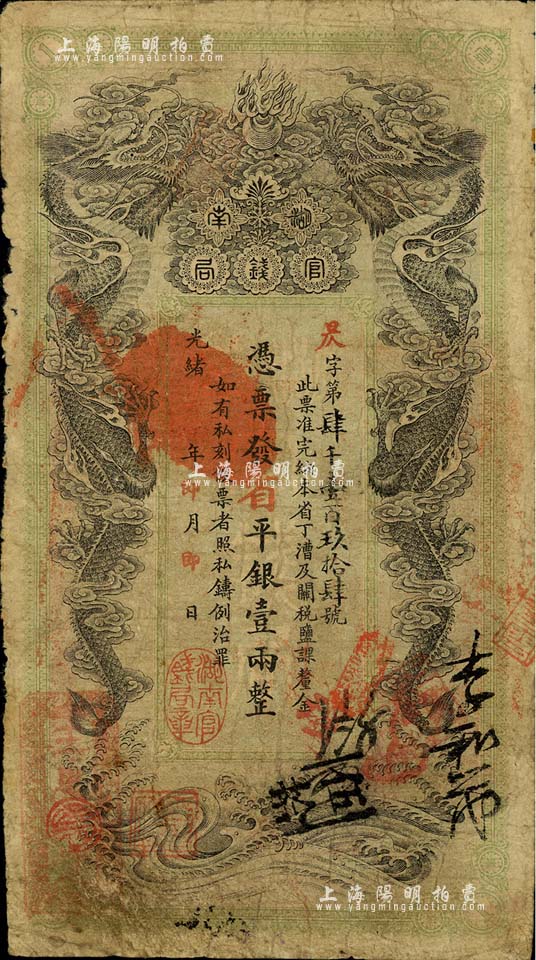 上海陽明拍賣
www.yangmingauction.com
壹
湖南
官錢局
字第肆千壹百玖拾肆號
此票准完納本省丁漕及關稅鹽課釐金
憑票發省平銀壹兩整
如有私刻假票者照私鑄例治罪
光緒 年 月 日
湖南官錢局章
上海陽明拍賣
www.yangmingauction.com
上海陽明拍賣
www.yangmingauction.com